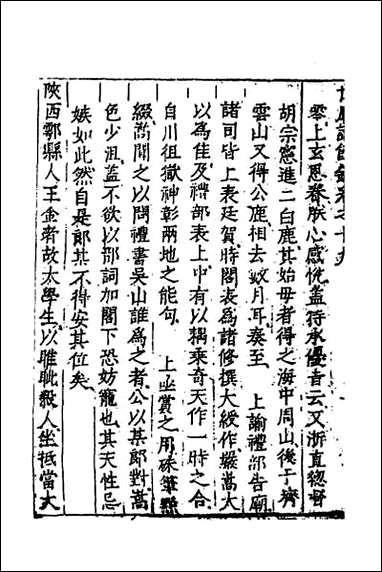 世廟識餘錄卷之十九
馭上玄恩眷朕心感悅蓋符承優者云又浙直總督
胡宗憲進二白鹿其始母者得之海中周山後于齊
雲山又得公鹿相去數月耳奏至　上諭禮部告廟
諸司皆上表廷賀時閣表爲諸修撰大綬作嚴嵩大
以爲佳及禮部表上中有以耦乘奇天作一時之合
自川徂嶽神彰兩地之能句　上幽賞之用硃筆點
綴嵩聞之以問禮書吳山誰爲之者公以某郎對嵩
色少沮蓋不欲以部詞加閣下恐妨寵也其天性忌
嫉如此然自是郎其不得安其位矣
陝西鄠縣人王金者故太學生以睚眦殺人坐抵當大